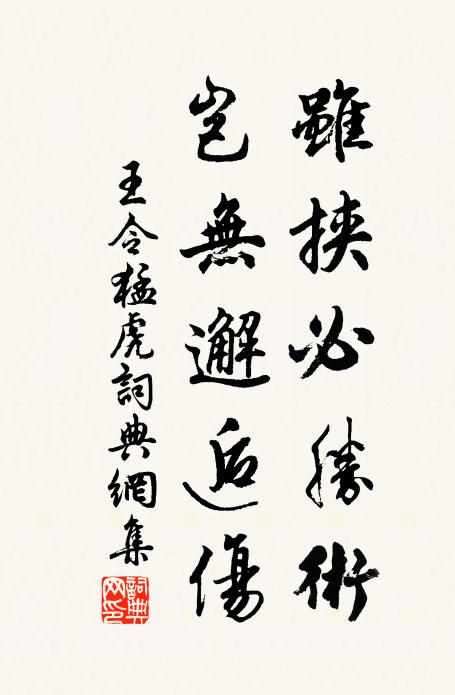 雖挾必勝術
豈無邂逅傷
王令猛虎詞典網集
詞典網印